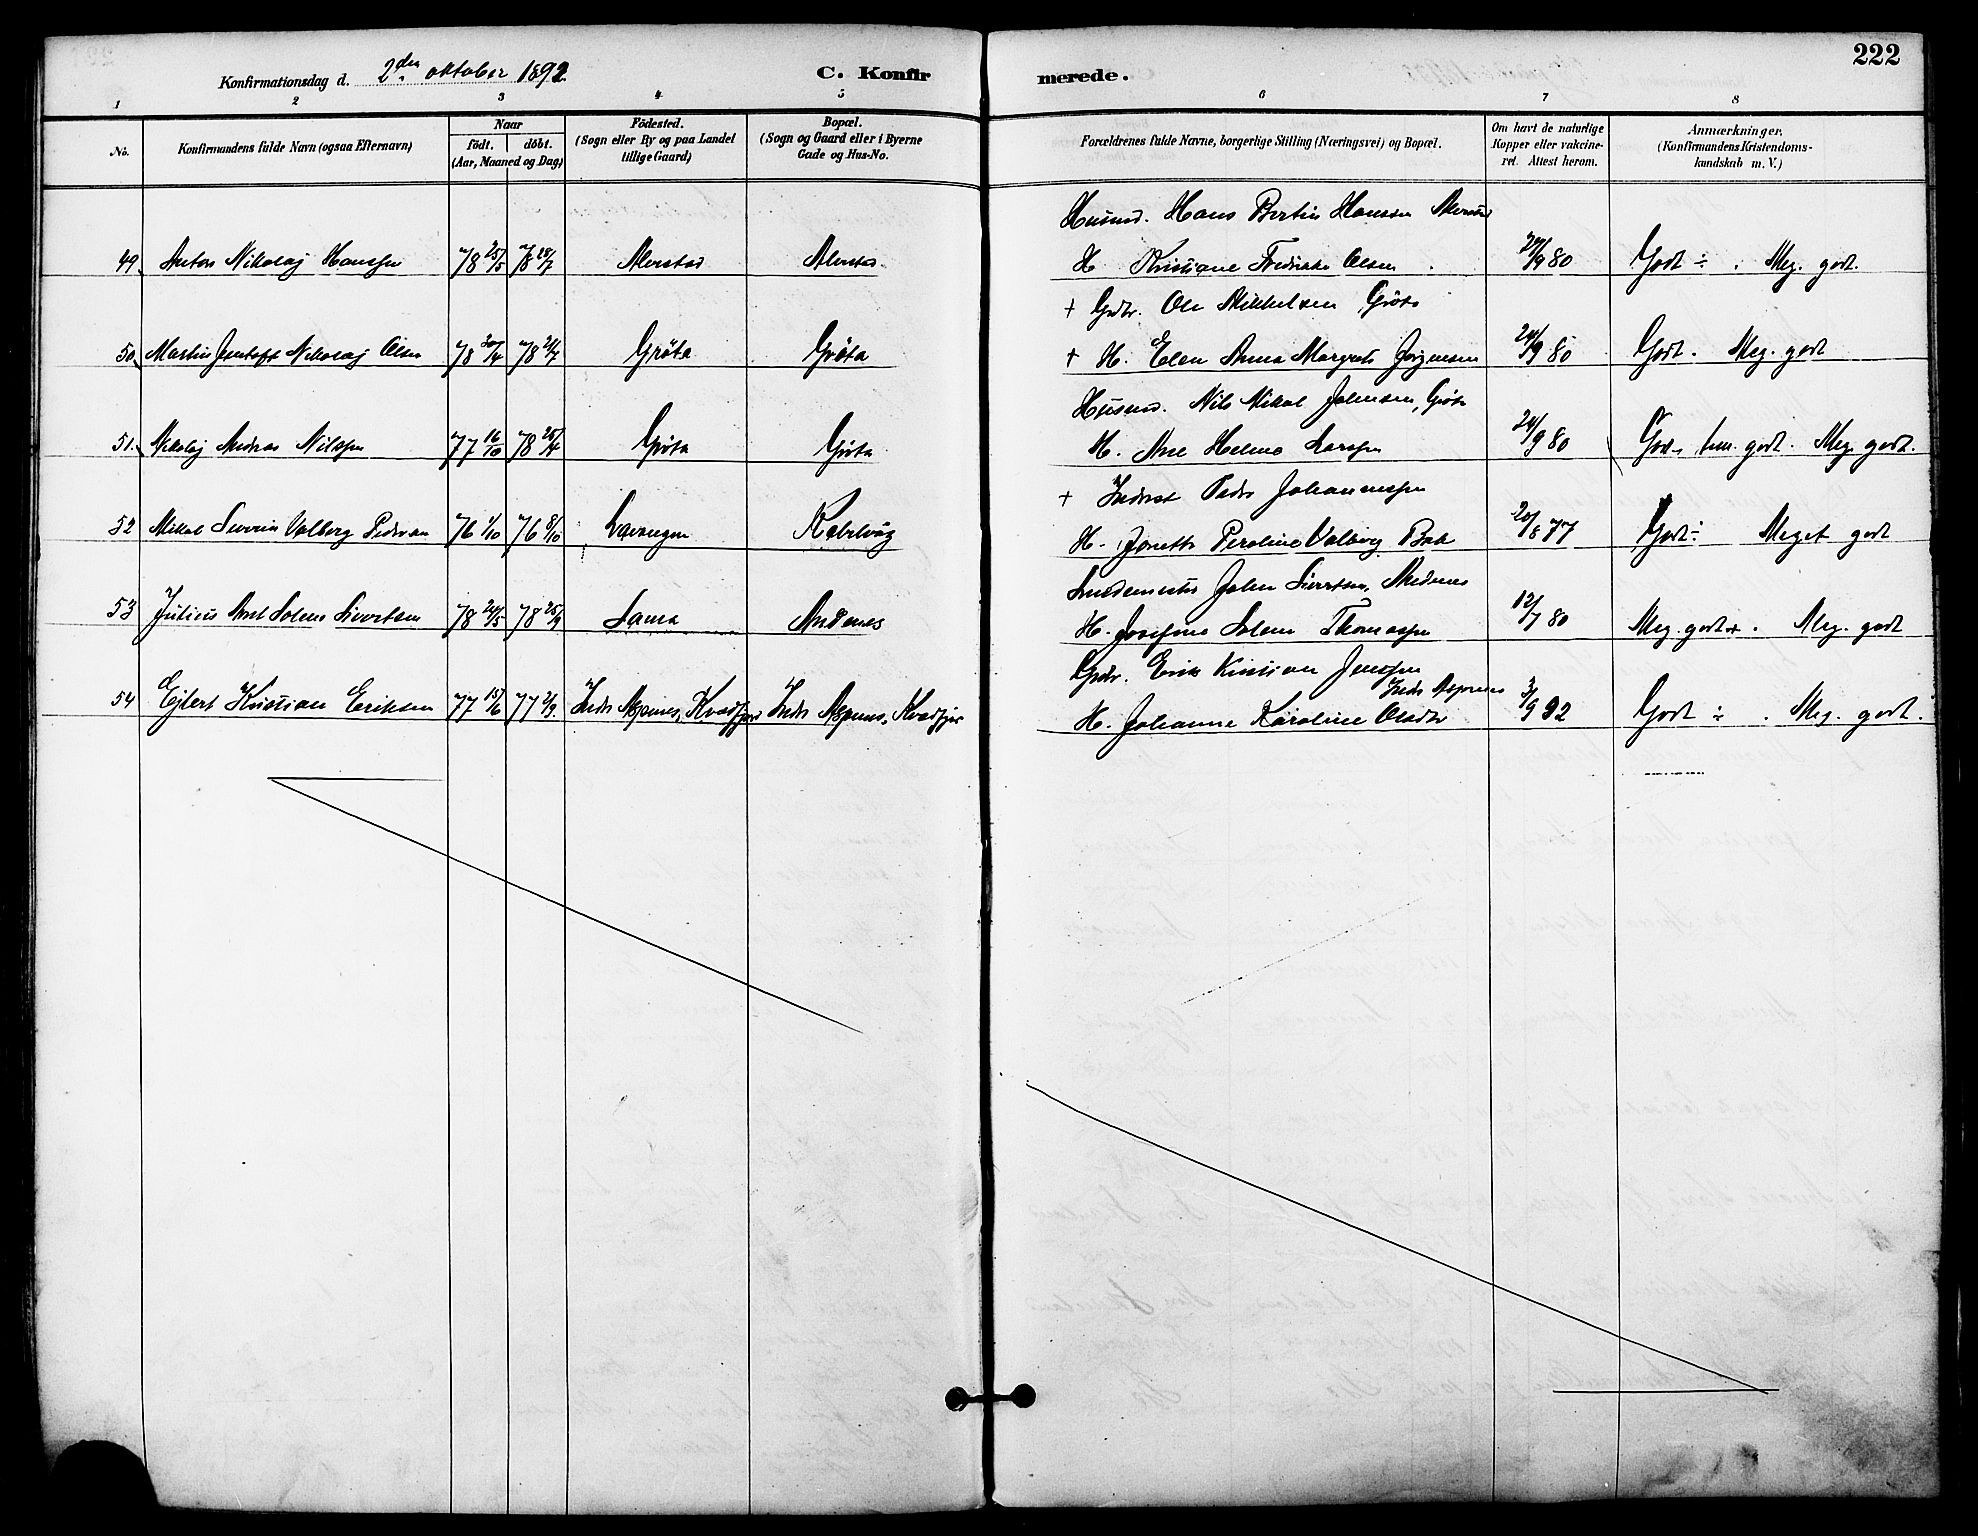 222
Konfirmationsdag d. 2den oktober 1892
C. Konfirmerede.
1 2 3 4 5 6 7 8
No.
Konfirmandens fulde Navn (ogsaa Efternavn)
Naar
födt. döbt.
(Aar, Maaned og Dag)
Födested.
(Sogn eller By og paa Landet
tillige Gaard)
Bopæl.
(Sogn og Gaard eller i Byerne
Gade og Hus-No.
Forældrenes fulde Navne, borgerlige Stilling (Næringsvei) og Bopæl.
Om havt de naturlige
Kopper eller vakcine-
ret. Attest herom.
Anmærkninger.
(Konfirmandens Kristendoms-
kundskab m. V.)
Husmd. Hans Bertin Hansen
49. Anton Nikolaj Hanssen 78 25/5 78 28/7 H Kristiane Fredrikke Olsen 24/9 80 Godt ÷. Meg. godt.
+ Grdbr. Ole Mikkelsen Gröta
50. Martin Jentoft Nikolaj Olsen 78 20/4 78 21/7 Gröta Gröta + H. Elen Anna Margrete Jörgensen 24/9 80 Godt. Meg. godt
Husmd. Nils Mikal Johnsen, Gröta
51. Nikolaj Andreas Nilssen 77 16/10 78 Gröta Gröta H. Ane Helmine Larssen 24/9 80 tem. godt. Meg. godt.
+ Inderst Peder Johannessen
52 Mikal Severin Valberg Pedersen 76 1/10 76 8/10 Lavangen H. Jonette Peroline Valberg 20/8 77 Godt ÷ Meget godt
John Sivertsen, Andenes
53 Julius Solem Sivertsen 78 24/5 78 25/9 Sama Andenes H. Josefine Solem Thomassen 12/7 80 Meg. godt +. Meg. godt
Grdbr. Erik Kristian Jenssen
Indr Aspenes
54 Ejlert Kristian Eriksen 77 15/6 77 2/9. Indr Aspenes, Kvædfjord Indr Aspenes, Kvædfjor H. Johanne Karoline Olsdtr 3/9 92 Godt ÷. Meg. godt.